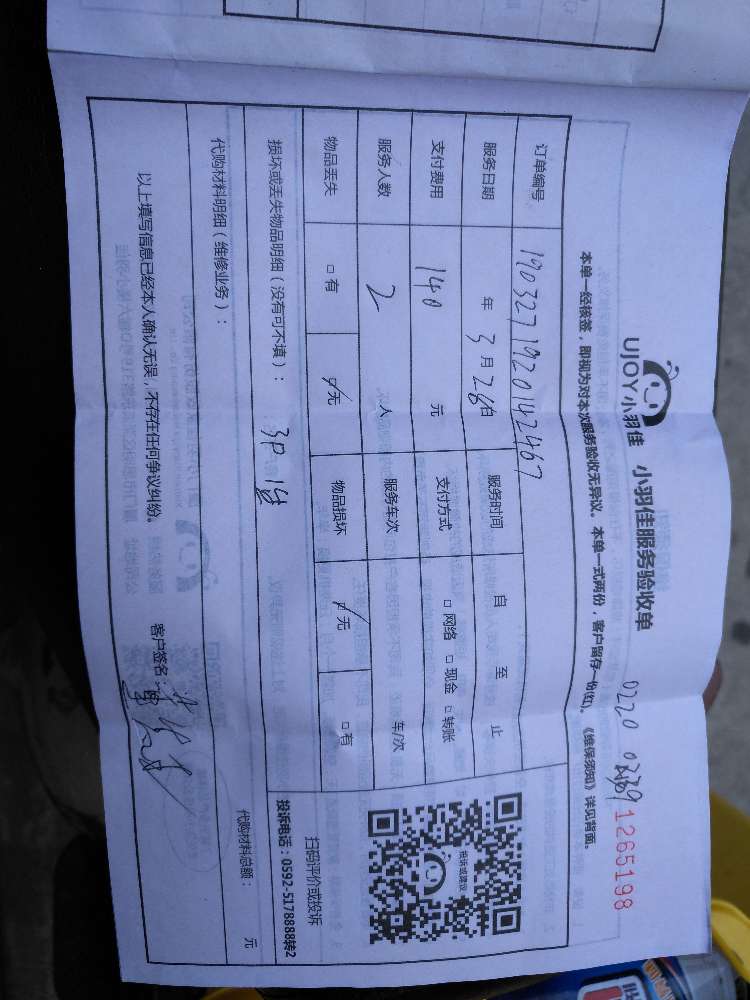 UJOY小羽佳 小羽佳服务验收单
0220 0239
1265198
本单一经核签，即视为对本次服务验收无异议。本单一式两份，客户留存一份(红)。《维保须知》详见背面。
订单编号 1903271920142467
服务日期 年 3 月 28 日 服务时间 自 至 止
支付费用 140 元 支付方式 □ 网络 □ 现金 □ 转账
服务人数 2 人 服务车次 车/次
物品丢失 □ 有 □ 无 物品损坏 □ 无 □ 有
损坏或丢失物品明细（没有可不填）： 3P 1台
投诉或建议
扫码评价或投诉
投诉电话：0592-5178888转2
代购材料明细（维修业务）：
代购材料总额： 元
以上填写信息已经本人确认无误，不存在任何争议纠纷。 客户签名：